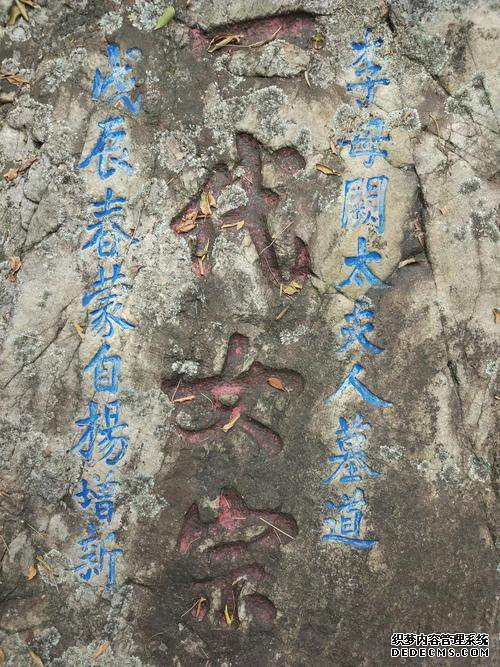 李母闕太夫人墓道
一代女宗
戊辰春蒙自楊增新
织梦内容管理系统
DEDECMS.COM